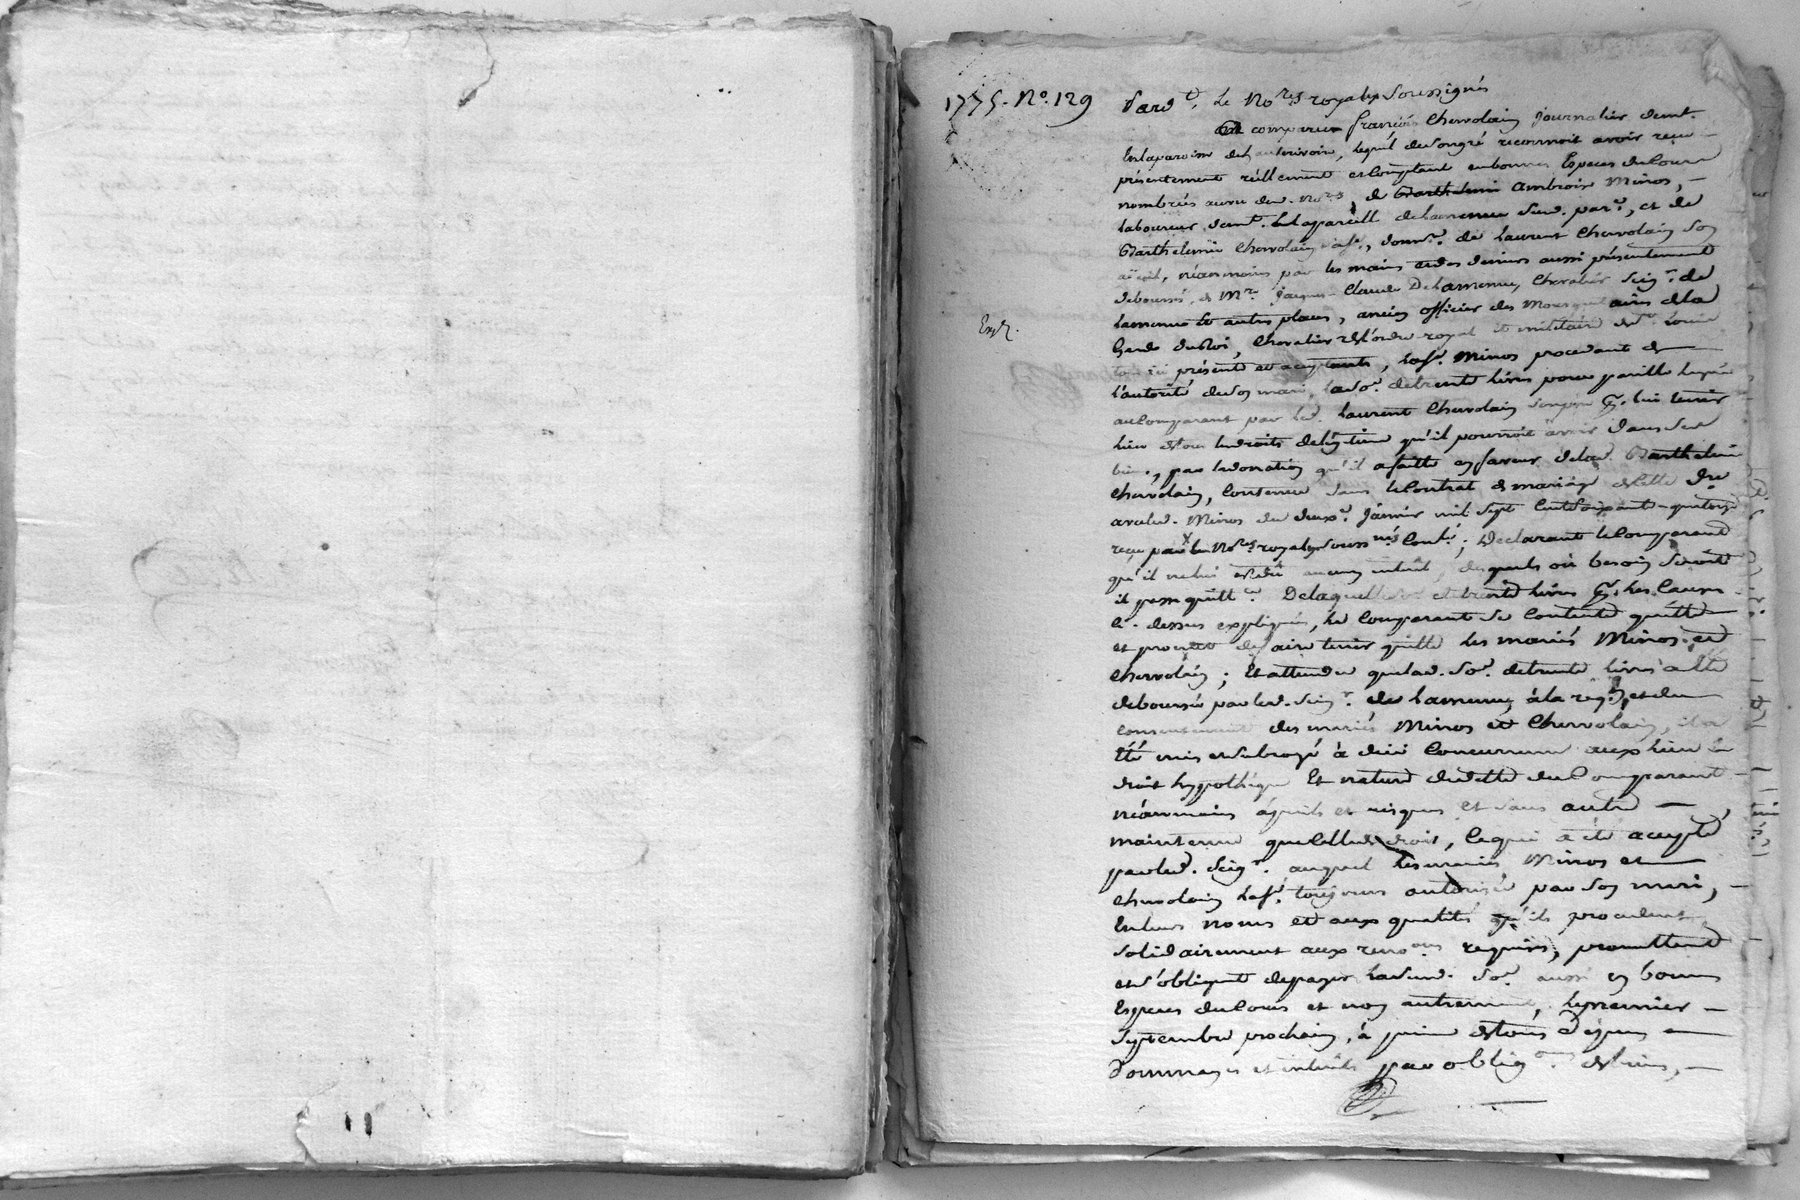 1775. No. 129
Pard.t Le No.res royalx Soussignés
Est comparu françois Chervolain Journalier demt.
En la paroisse de hauterivoire, lequel de son gré reconnoit avoir reçu
présentement réellement et comptant en bonnes Especes du Cours
nombrées au vu des. No.res, de Barthelemi Ambroise Minos, —
laboureur demt. de lad. par.e, et de
Barthelemie Chervolain sa fe., donre. de laurent Chervolain Son
ayeul, néanmoins par les mains et des deniers aussi présentement
deboursés de Mre. Jaques-Claude Delamenue, Chevalier Seigr. de
lamenue et autres places, ancien officier des Mousquetaires de la
Garde du Roi, Chevalier de l'ordre royal et militaire de St. Louis
tous ici présents et acceptants, la fe. Minos procedant de
l'autorité de son mari, la soe. de trente livres pour pareille leguée
au Comparant par led. laurent Chervolain son pour lui tenir
lieu de tous les droits de légitime qu'il pourroit avoir dans ses
biens, par la donation qu'il a faitte en faveur de lad. Barthelemie
Chervolain, Contenue dans le Contrat de mariage de cette dre.
avec led. Minos du deuxe. Janvier mil Sept Cent Soixante-quatorze
reçu par les No.res royalx Soussnés Contlé; Declarant le Comparant
qu'il ne lui est dû aucun interêt, desquels où besoin Seroit
il passe quittce. De laquelle soe. de trente livres pr. les Causes
ci-dessus expliquées, le Comparant Se Contente quitte
et promet de faire tenir quitte les mariés Minos et
Chervolain; Et attendu que lad. Soe. de trente livres a été
deboursée par led. Seigr. de lamenue, à la reqon. et du
consentement des mariés Minos et Chervolain, il a
été mis et subrogé à due Concurrence aux lieu
droit hypothéque Et nature de dette du Comparant —
néanmoins à perils et risques et sans autre —
maintenue que celle de droit, Ce qui a été accepté
par led. Seigr. auquel les mariés Minos et
Chervolain la fe. toujours autorisée par son mari, —
En leurs noms et aux qualités qu'ils procedent
Solidairement aux renoons requises, promettent
et s'obligent de payer la susd. Soe. aussi en bonnes
Especes du Cours et non autrement, le premier —
Septembre prochain, à peine de tous depens —
Dommages et intérêts par oblign. de biens, —